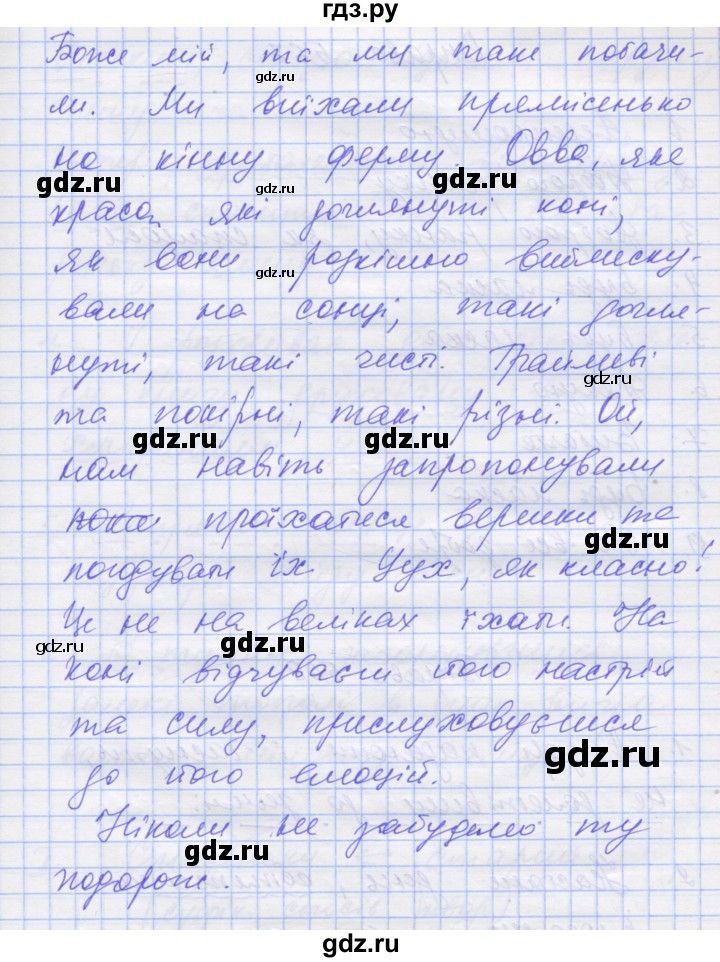 гдз.ру
Боже мій, та ми таке побачи-
ли. Ми виїхали прямісенько
на кінну ферму. Овва, яка
краса, які доглянуті коні,
як вони розкішно виблиску-
вали на сонці, такі догля-
нуті, такі чисті. Грайливі
та покірні, такі різні. Ой,
нам навіть запропонували
проїхатися верхи та
погодувати їх. Уух, як класно!
Це не на веліках їхати. На
коні відчуваєш його настрій
та силу, прислуховуєшся
до його емоцій.
Ніколи не забудемо ту
подорож.
gdz.ru
gdz.ru
gdz.ru
gdz.ru
gdz.ru
gdz.ru
gdz.ru
gdz.ru
gdz.ru
gdz.ru
gdz.ru
gdz.ru
gdz.ru
gdz.ru